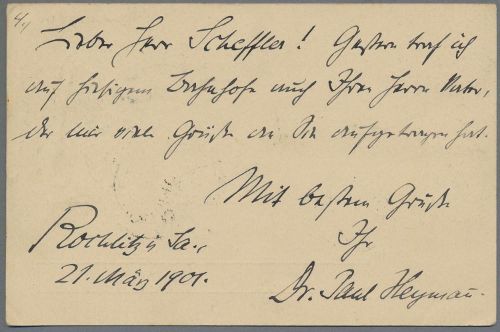 4.,
Lieber Herr Scheffler! Gestern traf ich
auf hiesigem Bahnhofe auch Ihren Herrn Vater,
der mir viele Grüße an Sie aufgetragen hat.
Mit bestem Gruße
Ihr
Rochlitz i/Sa.,
21. März 1901.
Dr. Paul Heyman.